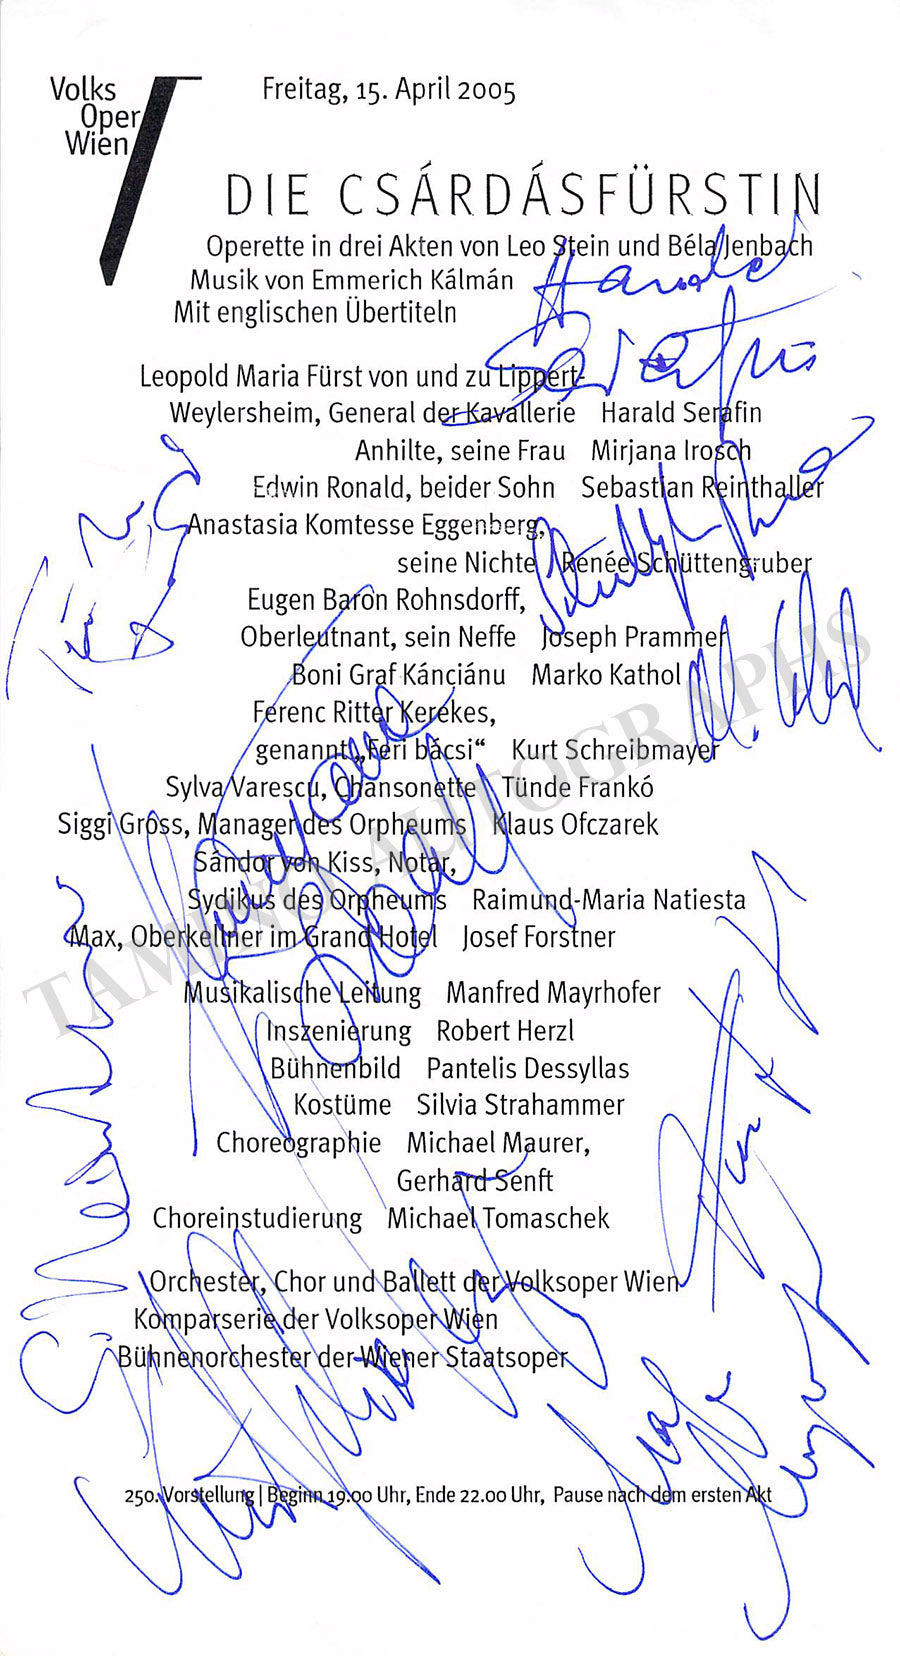 Volks
Oper
Wien
Freitag, 15. April 2005
DIE CSÁRDÁSFÜRSTIN
Operette in drei Akten von Leo Stein und Béla Jenbach
Musik von Emmerich Kálmán
Mit englischen Übertiteln
Harald
Serafin
Leopold Maria Fürst von und zu Lippert-
Weylersheim, General der Kavallerie Harald Serafin
Anhilte, seine Frau Mirjana Irosch
Edwin Ronald, beider Sohn Sebastian Reinthaller
Anastasia Komtesse Eggenberg,
seine Nichte Renée Schüttengruber
Eugen Baron Rohnsdorff,
Oberleutnant, sein Neffe Joseph Prammer
Boni Graf Kánciánu Marko Kathol
Ferenc Ritter Kerekes,
genannt „Feri bácsi“ Kurt Schreibmayer
Sylva Varescu, Chansonette Tünde Frankó
Siggi Gross, Manager des Orpheums Klaus Ofczarek
Sándor von Kiss, Notar,
Sydikus des Orpheums Raimund-Maria Natiesta
Max, Oberkellner im Grand Hotel Josef Forstner
Musikalische Leitung Manfred Mayrhofer
Inszenierung Robert Herzl
Bühnenbild Pantelis Dessyllas
Kostüme Silvia Strahammer
Choreographie Michael Maurer,
Gerhard Senft
Choreinstudierung Michael Tomaschek
Orchester, Chor und Ballett der Volksoper Wien
Komparserie der Volksoper Wien
Bühnenorchester der Wiener Staatsoper
250. Vorstellung | Beginn 19.00 Uhr, Ende 22.00 Uhr, Pause nach dem ersten Akt
TAMINO AUTOGRAPHS